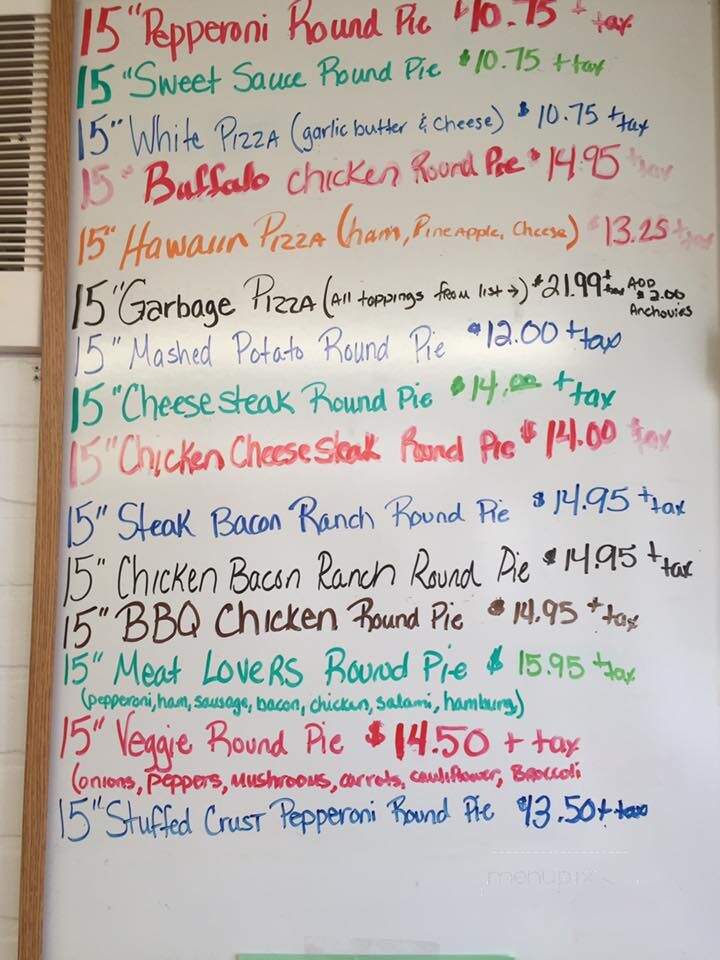 15" Pepperoni Round Pie $10.75 + tax
15" Sweet Sauce Round Pie $10.75 + tax
15" White Pizza (garlic butter & cheese) $10.75 + tax
15" Buffalo chicken Round Pie $14.95 tax
15" Hawaiin Pizza (ham, Pineapple, Cheese) $13.25 + tax
15" Garbage Pizza (All toppings from list →) $21.99 + tax ADD $2.00 Anchovies
15" Mashed Potato Round Pie $12.00 + tax
15" Cheese steak Round Pie $14.00 + tax
15" Chicken Cheese Steak Round Pie $14.00 tax
15" Steak Bacon Ranch Round Pie $14.95 + tax
15" Chicken Bacon Ranch Round Pie $14.95 + tax
15" BBQ Chicken Round Pie $14.95 + tax
15" Meat Lovers Round Pie $15.95 + tax
(pepperoni, ham, sausage, bacon, chicken, salami, hamburg)
15" Veggie Round Pie $14.50 + tax
(onions, peppers, mushrooms, carrots, cauliflower, Broccoli
15" Stuffed Crust Pepperoni Round Pie $13.50 + tax
menupix